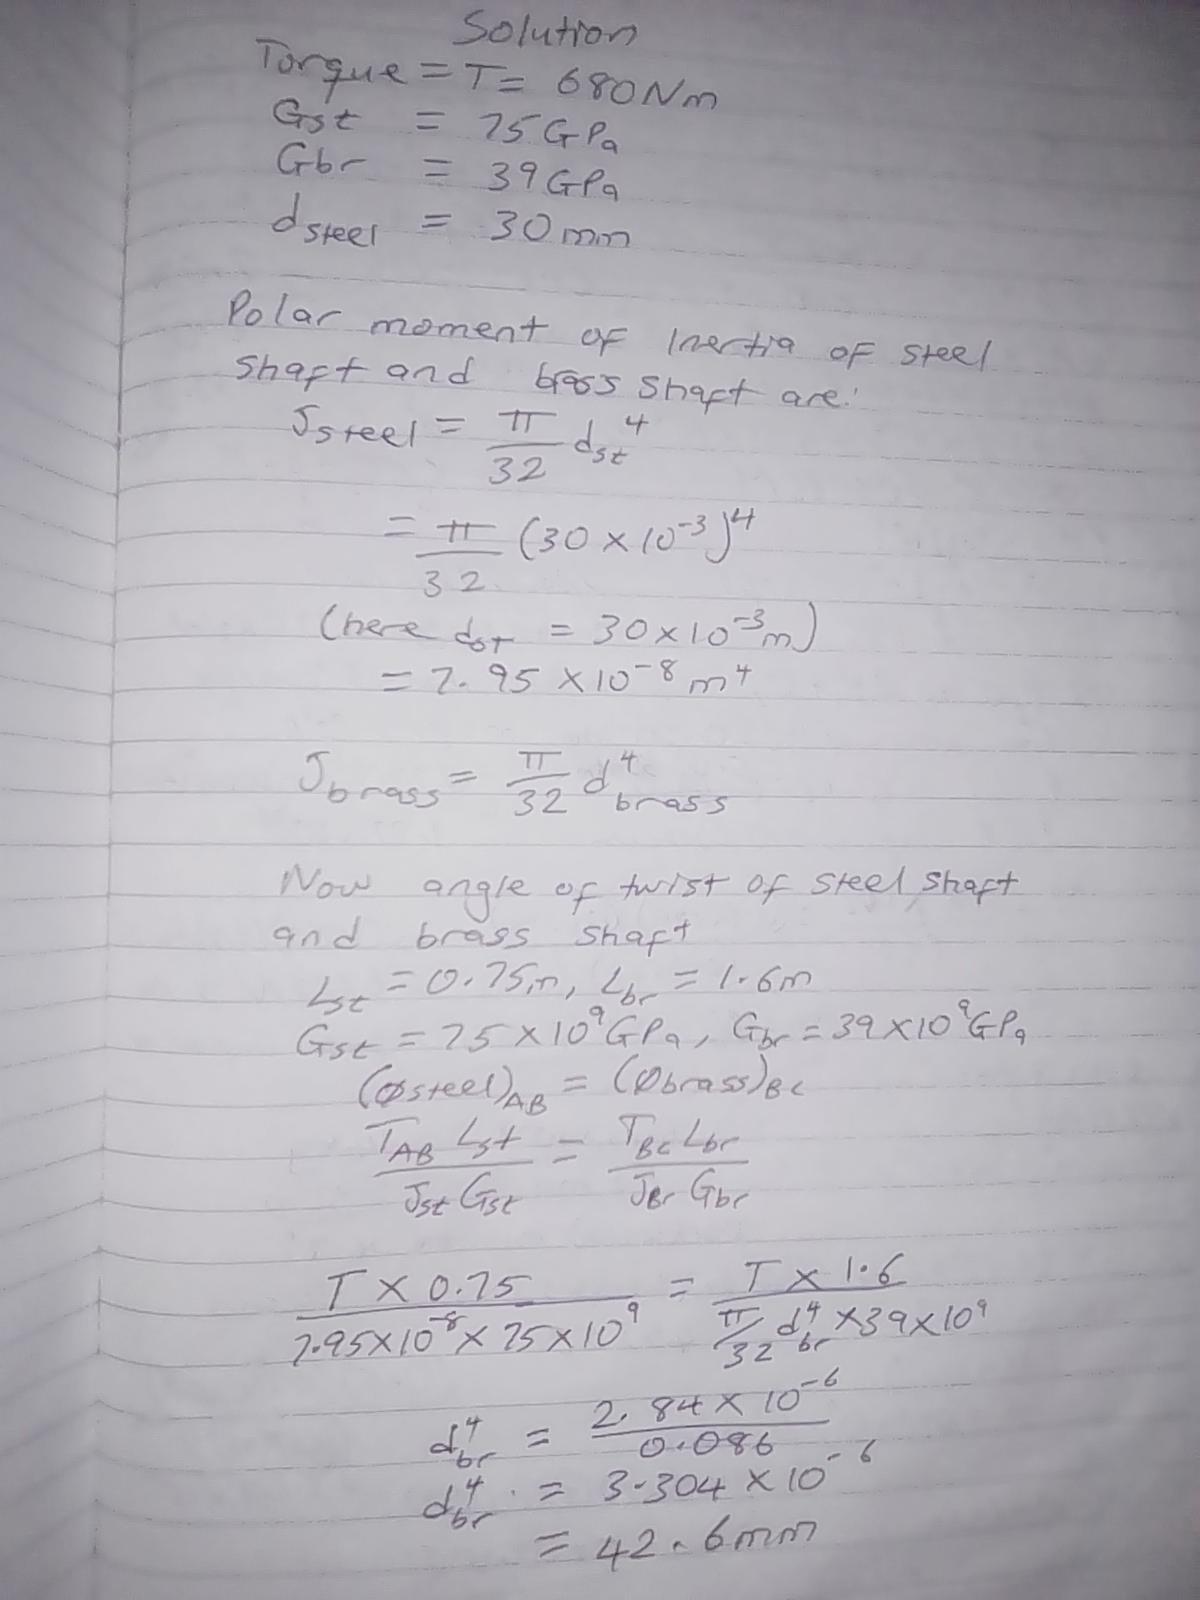 Solution
Torque = T = 680Nm
Gst = 75GPa
Gbr = 39GPa
dsteel = 30mm
Polar moment of Inertia of steel
Shaft and brass shaft are:
Jsteel = π/32 dst⁴
= π/32 (30 × 10⁻³)⁴
(here dst = 30×10⁻³m)
= 7.95 × 10⁻⁸ m⁴
Jbrass = π/32 d⁴brass
Now angle of twist of steel shaft
and brass shaft
Lst = 0.75m, Lbr = 1.6m
Gst = 75 × 10⁹GPa, Gbr = 39×10⁹GPa
(Østeel)AB = (Øbrass)BC
TAB Lst / Jst Gst = TBC Lbr / JBr Gbr
T × 0.75 / 7.95×10⁻⁸ × 75×10⁹ = T × 1.6 / π/32 d⁴br × 39×10⁹
d⁴br = 2.84 × 10⁻⁶ / 0.086
d⁴br = 3.304 × 10⁻⁶
= 42.6mm